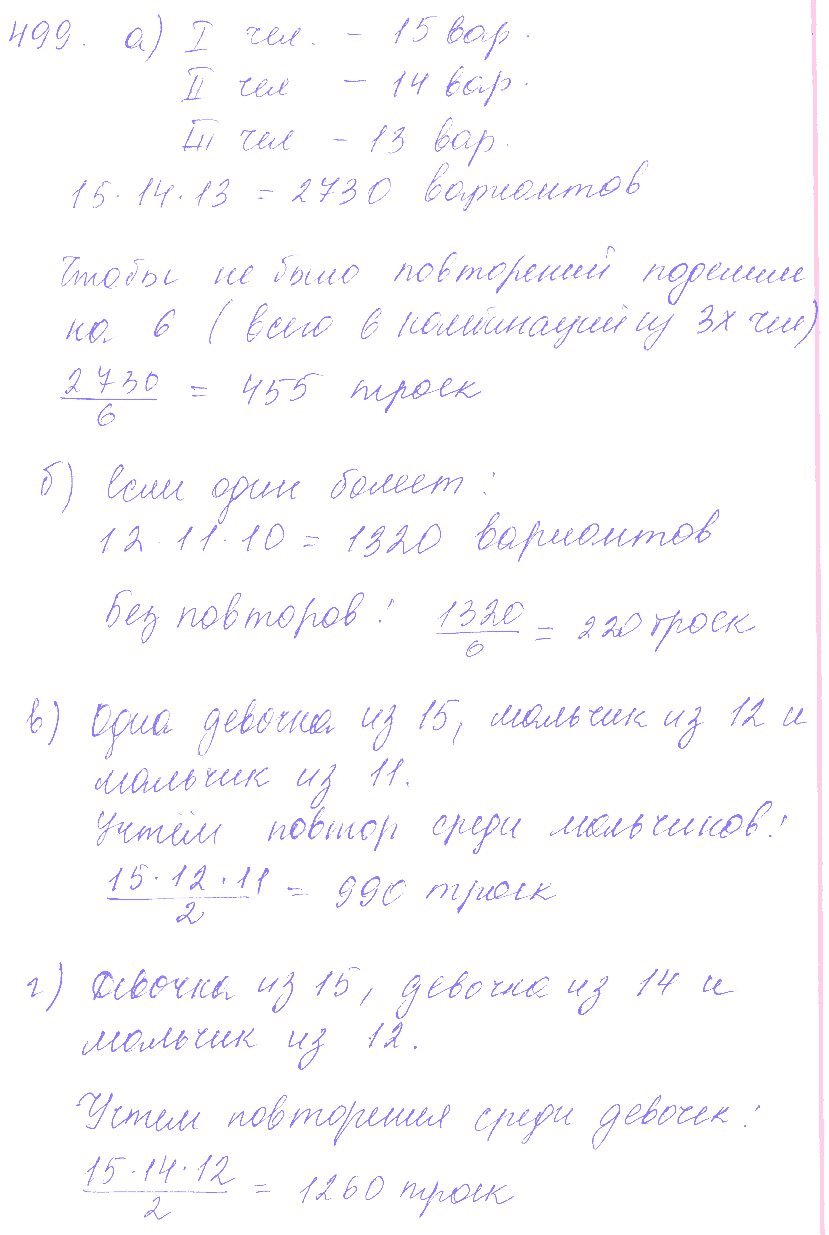 499. а) I чел. - 15 вар.
II чел - 14 вар.
III чел - 13 вар.
15·14·13 = 2730 вариантов
Чтобы не было повторений поделим
на 6 (всего 6 комбинаций из 3х чел)
2730/6 = 455 троек
б) Если один болеет:
12·11·10 = 1320 вариантов
Без повторов: 1320/6 = 220 троек
в) Одна девочка из 15, мальчик из 12 и
мальчик из 11.
Учтём повтор среди мальчиков:
15·12·11/2 = 990 троек
г) Девочка из 15, девочка из 14 и
мальчик из 12.
Учтем повторения среди девочек:
15·14·12/2 = 1260 троек